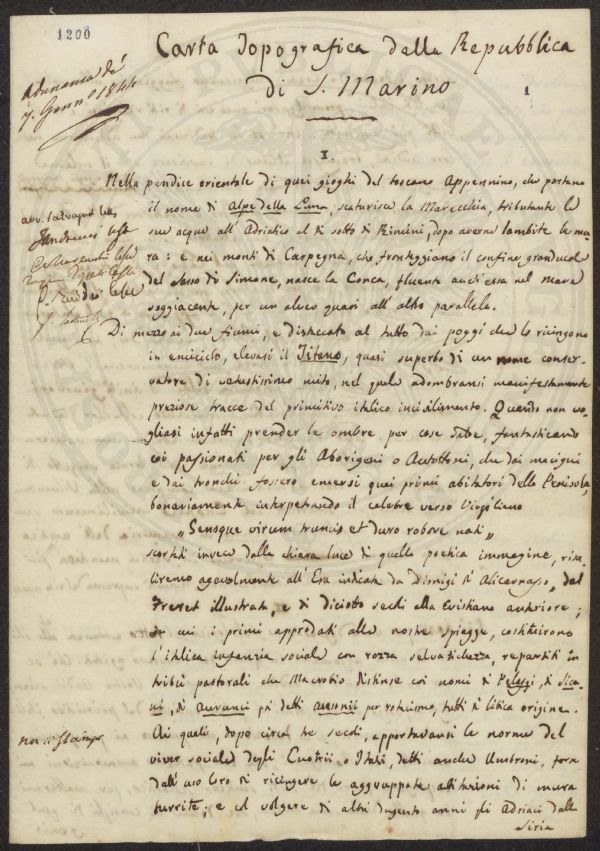 1200
Adunanza de'
7. Genn.o 1844
Carta topografica della Repubblica
di S. Marino
1
I.
Nella pendice orientale di quei gioghi del toscano Appennino, che portano
il nome di Alpe della Luna, scaturisce la Marecchia, tributante le
sue acque all'Adriatico al di sotto di Rimini, dopo averne lambite le mu-
ra: e nei monti di Carpegna, che fronteggiano il confine granducale
del Sasso di Simone, nasce la Conca, fluente anch'essa nel mare
soggiacente, per un alveo quasi all'altro parallelo.
Di mezzo ai due fiumi, e distaccato al tutto dai poggi che lo ricingono
in emiciclo, elevasi il Titano, quasi superbo di un nome conser-
vatore di vetustissimo mito, nel quale adombransi manifestamente
preziose tracce del primitivo italico incivilimento. Quando non vo-
gliasi infatti prender le ombre per cose salde, fantasticando
coi passionati per gli Aborigeni o Autottoni, che dai macigni
e dai tronchi fossero emersi quei primi abitatori della Penisola,
bonariamente interpetrando il celebre verso Virgiliano
„Gensque virum truncis et duro robore nati„
scortati invece dalla chiara luce di quella poetica immagine, risa-
liremo agevolmente all'Era indicata da Dionigi d'Alicarnasso, dal
Freret illustrata, e di diciotto secoli alla Cristiana anteriore;
in cui i primi approdati alle nostre spiagge, costituirono
l'italica infanzia sociale con rozza selvatichezza, repartiti in
tribù pastorali che Macrobio distinse coi nomi di Pelasgi, di Sica-
ni, di Aurunci già detti Ausonii per rotacismo, tutti di libica origine.
Ai quali, dopo circa tre secoli, apportavansi le norme del
viver sociale degli Enotrii o Itali, detti anche Umbroni, forse
dall'uso loro di ricingere le aggruppate abitazioni di mura
turrite; e al volgere di altri dugento anni gli Adriaci dalla
Siria
non si stampi